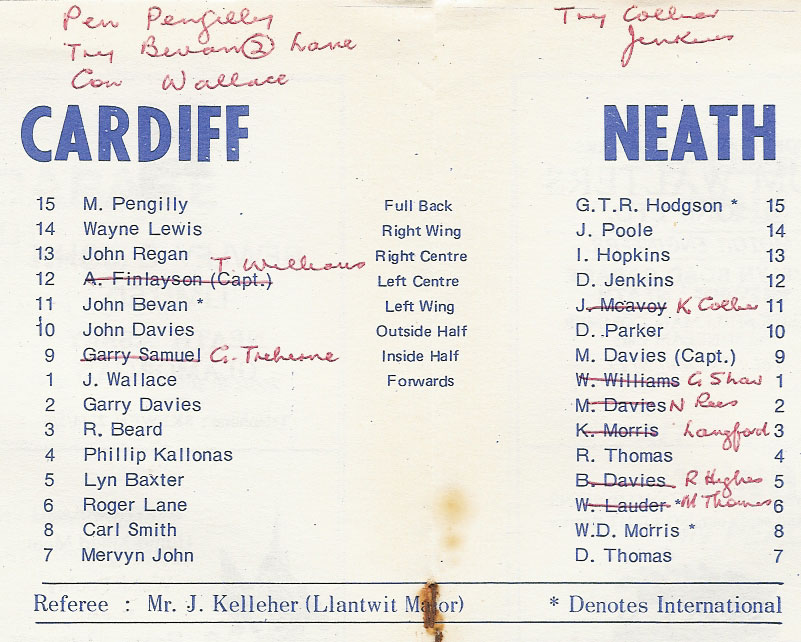 Pen Pengilly
Try Bevan ② Lane
Con Wallace
Try Collier
Jenkins
CARDIFF
NEATH
15 M. Pengilly Full Back G.T.R. Hodgson * 15
14 Wayne Lewis Right Wing J. Poole 14
13 John Regan Right Centre I. Hopkins 13
12 A. Finlayson (Capt.) T. Williams Left Centre D. Jenkins 12
11 John Bevan * Left Wing J. Mcavoy K Collier 11
10 John Davies Outside Half D. Parker 10
9 Garry Samuel G. Treherne Inside Half M. Davies (Capt.) 9
1 J. Wallace Forwards W. Williams G Shaw 1
2 Garry Davies M. Davies N Rees 2
3 R. Beard K. Morris Langford 3
4 Phillip Kallonas R. Thomas 4
5 Lyn Baxter B. Davies R Hughes 5
6 Roger Lane W. Lauder * M Thomas 6
8 Carl Smith W.D. Morris * 8
7 Mervyn John D. Thomas 7
Referee : Mr. J. Kelleher (Llantwit Major) * Denotes International